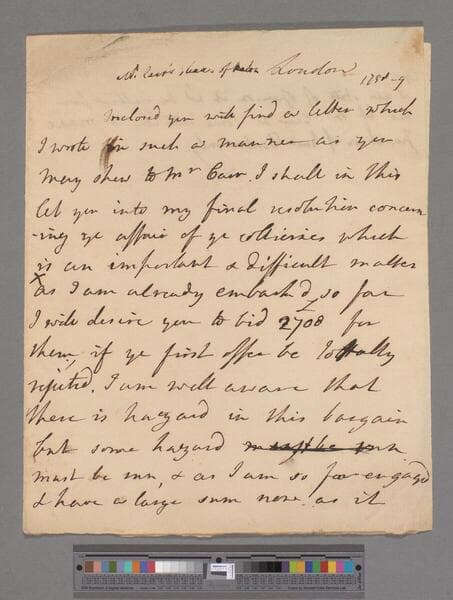 Mr Carr's shares of London
1758-9
Inclosed you will find a letter which
I wrote in such a manner as you
may shew to Mr Carr. I shall in this
let you into my final resolution concern
-ing ye affair of ye collieries which
is an important & difficult matter
as I am already embark'd so far
I will desire you to bid 2708 for
them, if ye first offer be totally
rejected. I am well aware that
there is hazard in this bargain
but some hazard must be run
must be run, & as I am so far engag'd
& have a large sum now as it